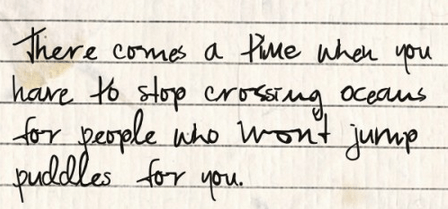 There comes a time when you
have to stop crossing oceans
for people who wont jump
puddles for you.